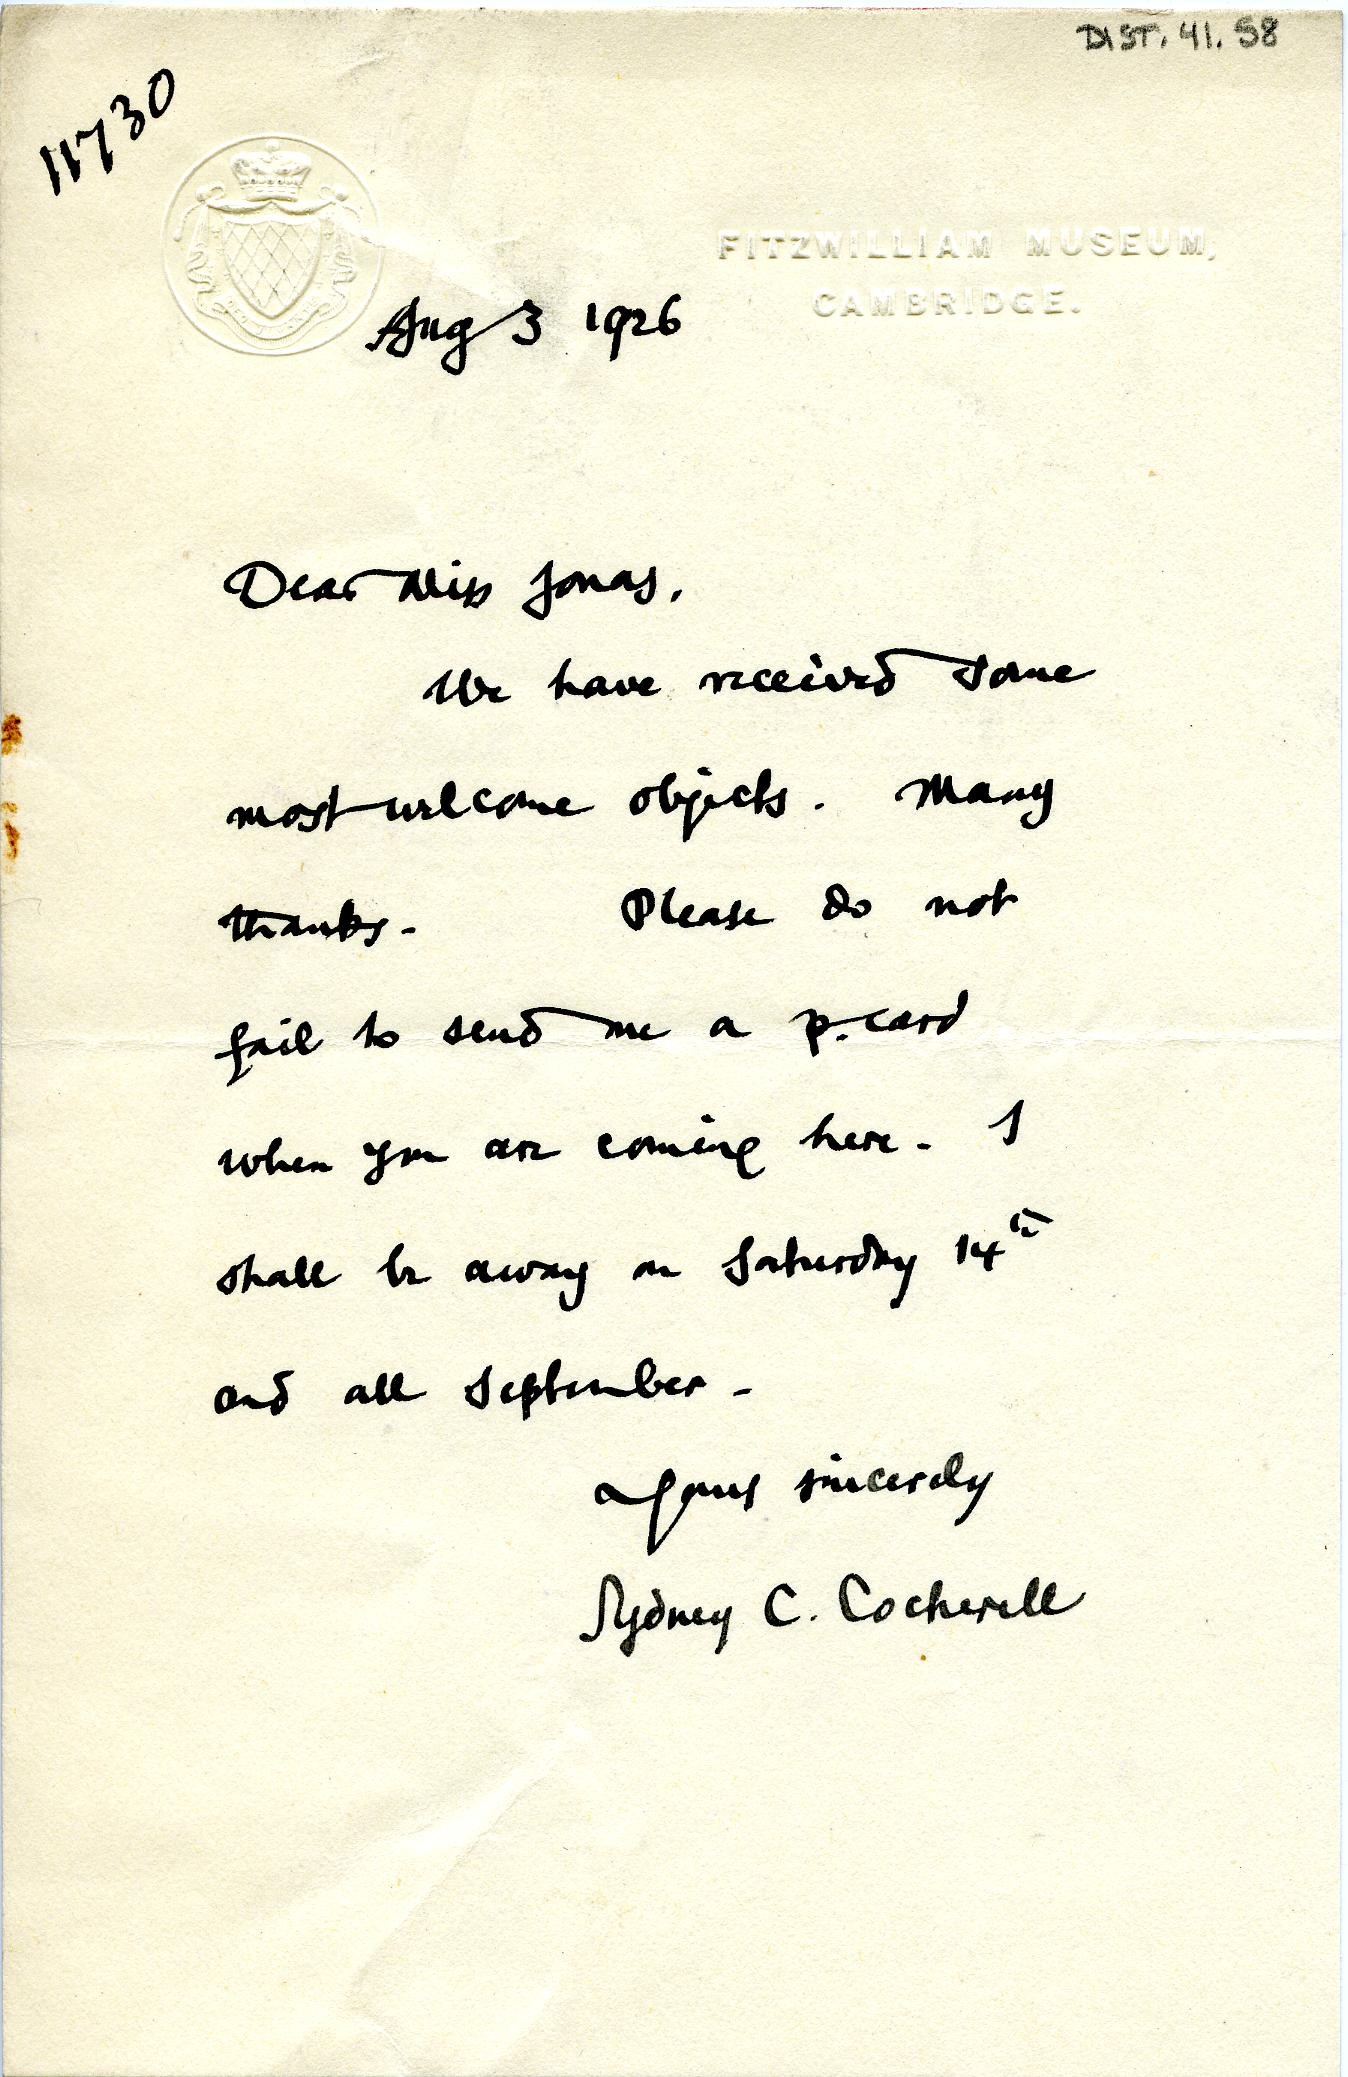 DIST. 41. 58
11730
FITZWILLIAM MUSEUM,
CAMBRIDGE.
Aug 3 1926
Dear Miss Jonas,
We have received some
most welcome objects. Many
thanks. Please do not
fail to send me a p. card
when you are coming here. I
shall be away on Saturday 14th
and all September.
Yours sincerely
Sydney C. Cockerell